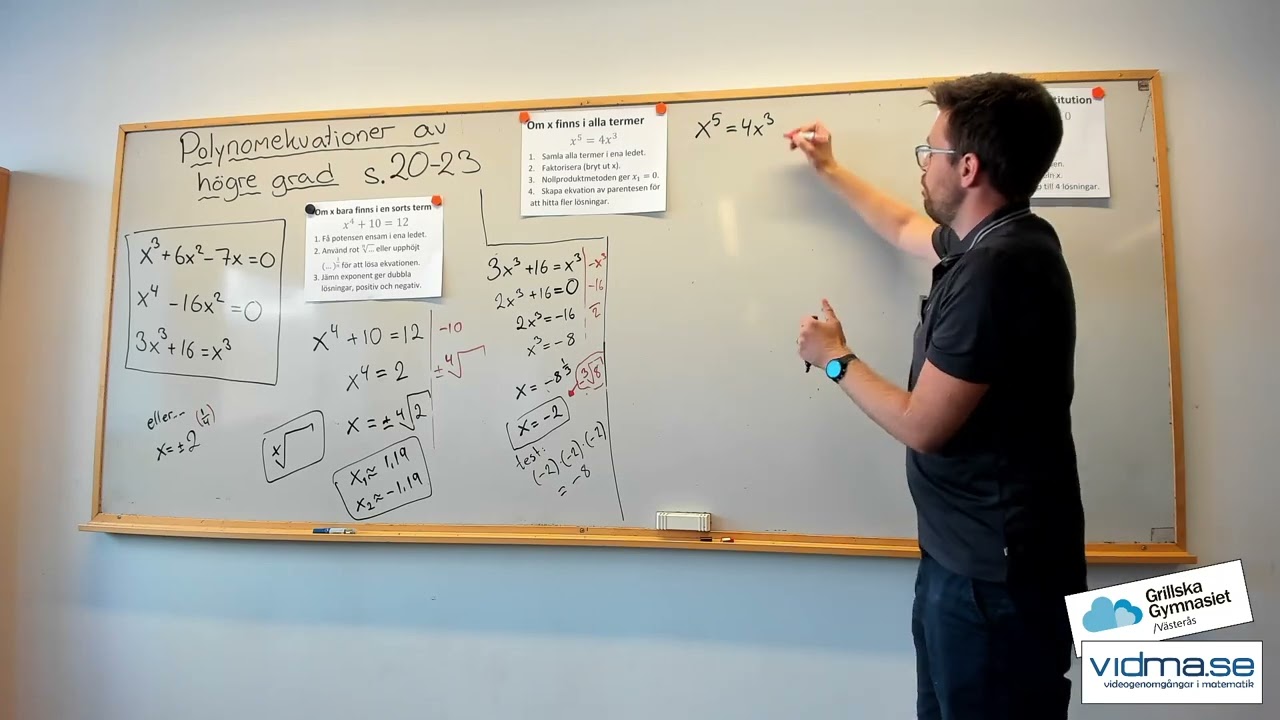 Polynomekvationer av
högre grad s.20-23
x³+6x²-7x=0
x⁴-16x²=0
3x³+16=x³
Om x bara finns i en sorts term
x⁴ + 10 = 12
1. Få potensen ensam i ena ledet.
2. Använd rot ⁿ√... eller upphöjt
(...)^(1/n) för att lösa ekvationen.
3. Jämn exponent ger dubbla
lösningar, positiv och negativ.
x⁴+10=12 -10
x⁴=2 ±⁴√
x=±⁴√2
x₁≈1,19
x₂≈-1,19
eller..
x=±2^(1/4)
ˣ√
Om x finns i alla termer
x⁵ = 4x³
1. Samla alla termer i ena ledet.
2. Faktorisera (bryt ut x).
3. Nollproduktmetoden ger x₁ = 0.
4. Skapa ekvation av parentesen för
att hitta fler lösningar.
3x³+16=x³ -x³
2x³+16=0 -16
2x³=-16 2
x³=-8
x=-8^(1/3)
x=-2
test:
(-2)·(-2)·(-2)
=-8
x⁵=4x³
0
p till 4 lösningar.
Grillska
Gymnasiet
/Västerås
vidma.se
videogenomgångar i matematik